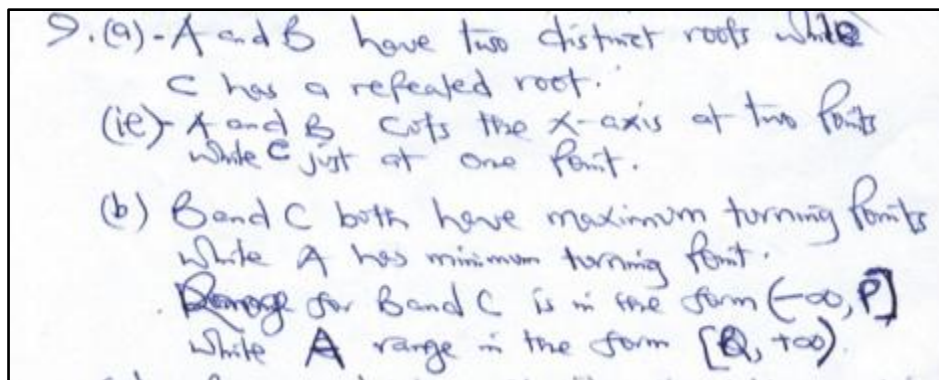 9. (a) - A and B have two distinct roots while
C has a repeated root.
(ie) - A and B cuts the x-axis at two points
while C just at one point.
(b) B and C both have maximum turning points
while A has minimum turning point.
Range for B and C is in the form (-∞, P]
while A range in the form [Q, +∞).